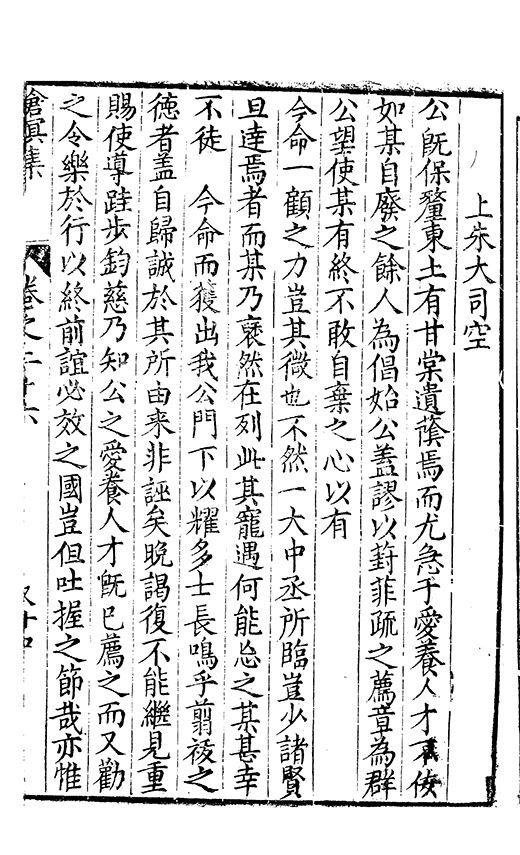 上朱大司空
公旣保釐東土有甘棠遺蔭焉而尤急于愛養人才不佞
如某自廢之餘人為倡始公蓋謬以葑菲疏之薦章為群
公望使某有終不敢自棄之心以有
今命一顧之力豈其微也不然一大中丞所臨豈少諸賢
旦逹焉者而某乃褎然在列此其寵遇何能忘之某甚幸
不徒　今命而獲出我公門下以耀多士長鳴乎翦祓之
德者盖自歸誠於其所由来非誣矣晚謁復不能繼見重
賜使導跬步鈞慈乃知公之愛養人才旣已薦之而又勸
之令樂於行以終前誼必效之國豈但吐握之節哉亦惟
滄溟集
卷之二十六